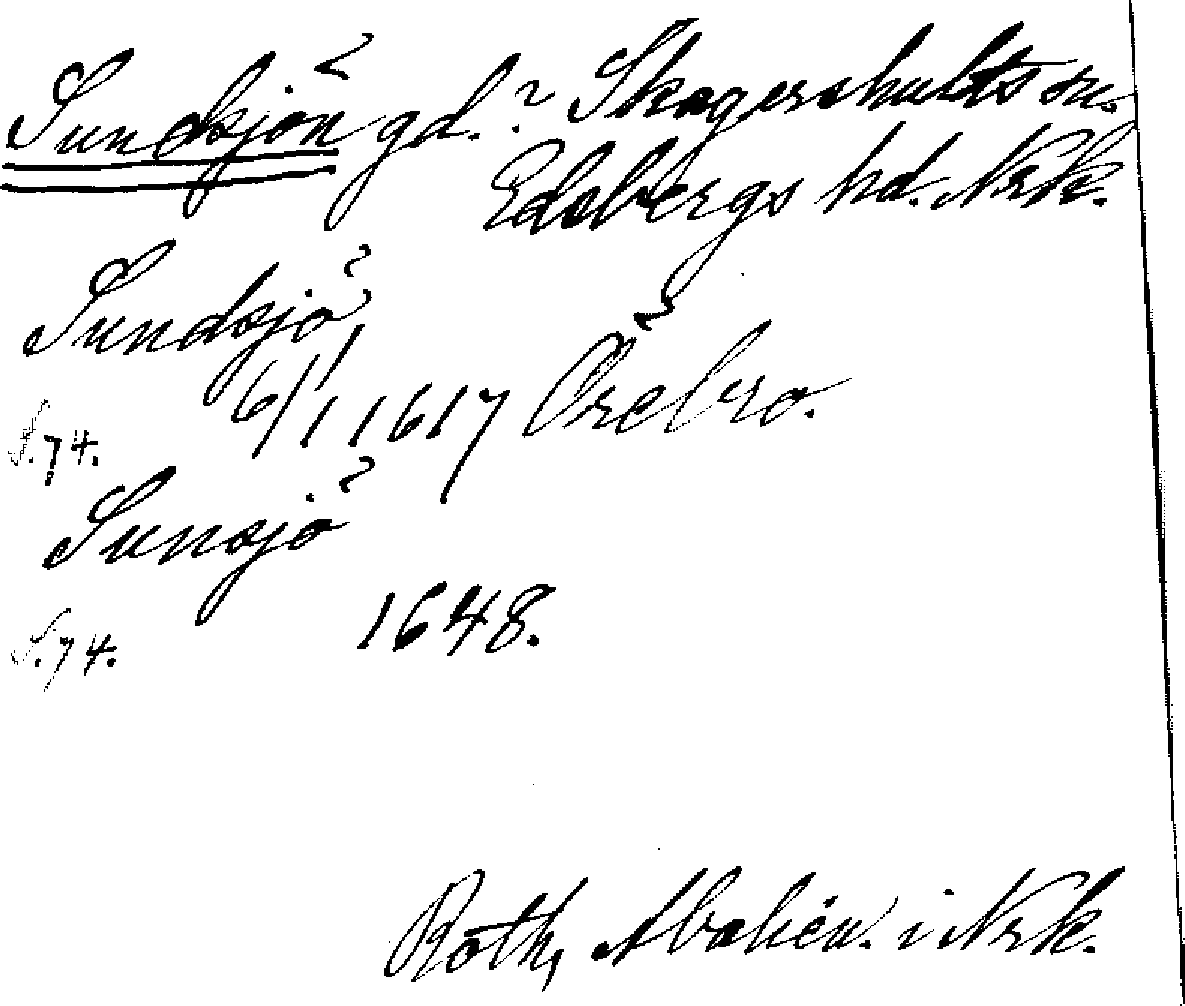 Sundsjön gd.? Skagershults sn.
Edsbergs hd. Nrk.
Sundsjö
S. 74. 6/11 1617 Örebro.
Sunsjö
S. 74. 1648.
Roth, i Nrk.